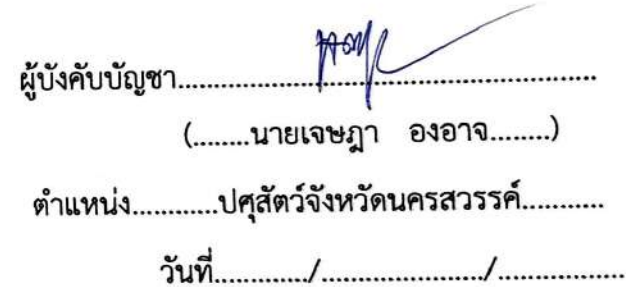 ผู้บังคับบัญชา............................................................
(........นายเจษฎา องอาจ........)
ตำแหน่ง............ปศุสัตว์จังหวัดนครสวรรค์............
วันที่............./......................./.................